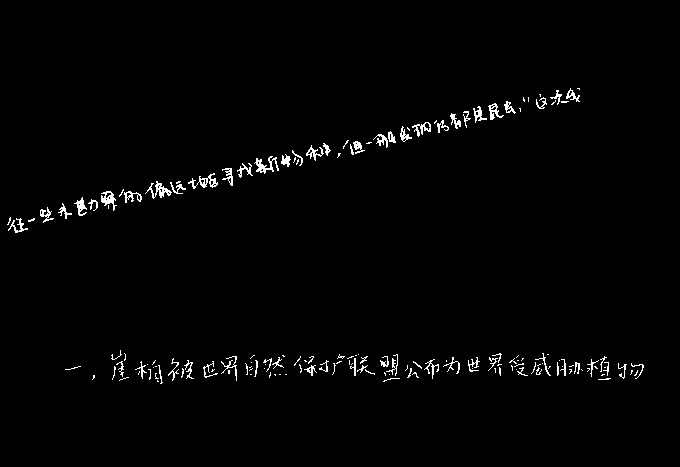 往一些未勘界的偏远地区寻找新物种，但一般发现的都是昆虫，"这次我
一，崖柏被世界自然保护联盟公布为世界受威胁植物